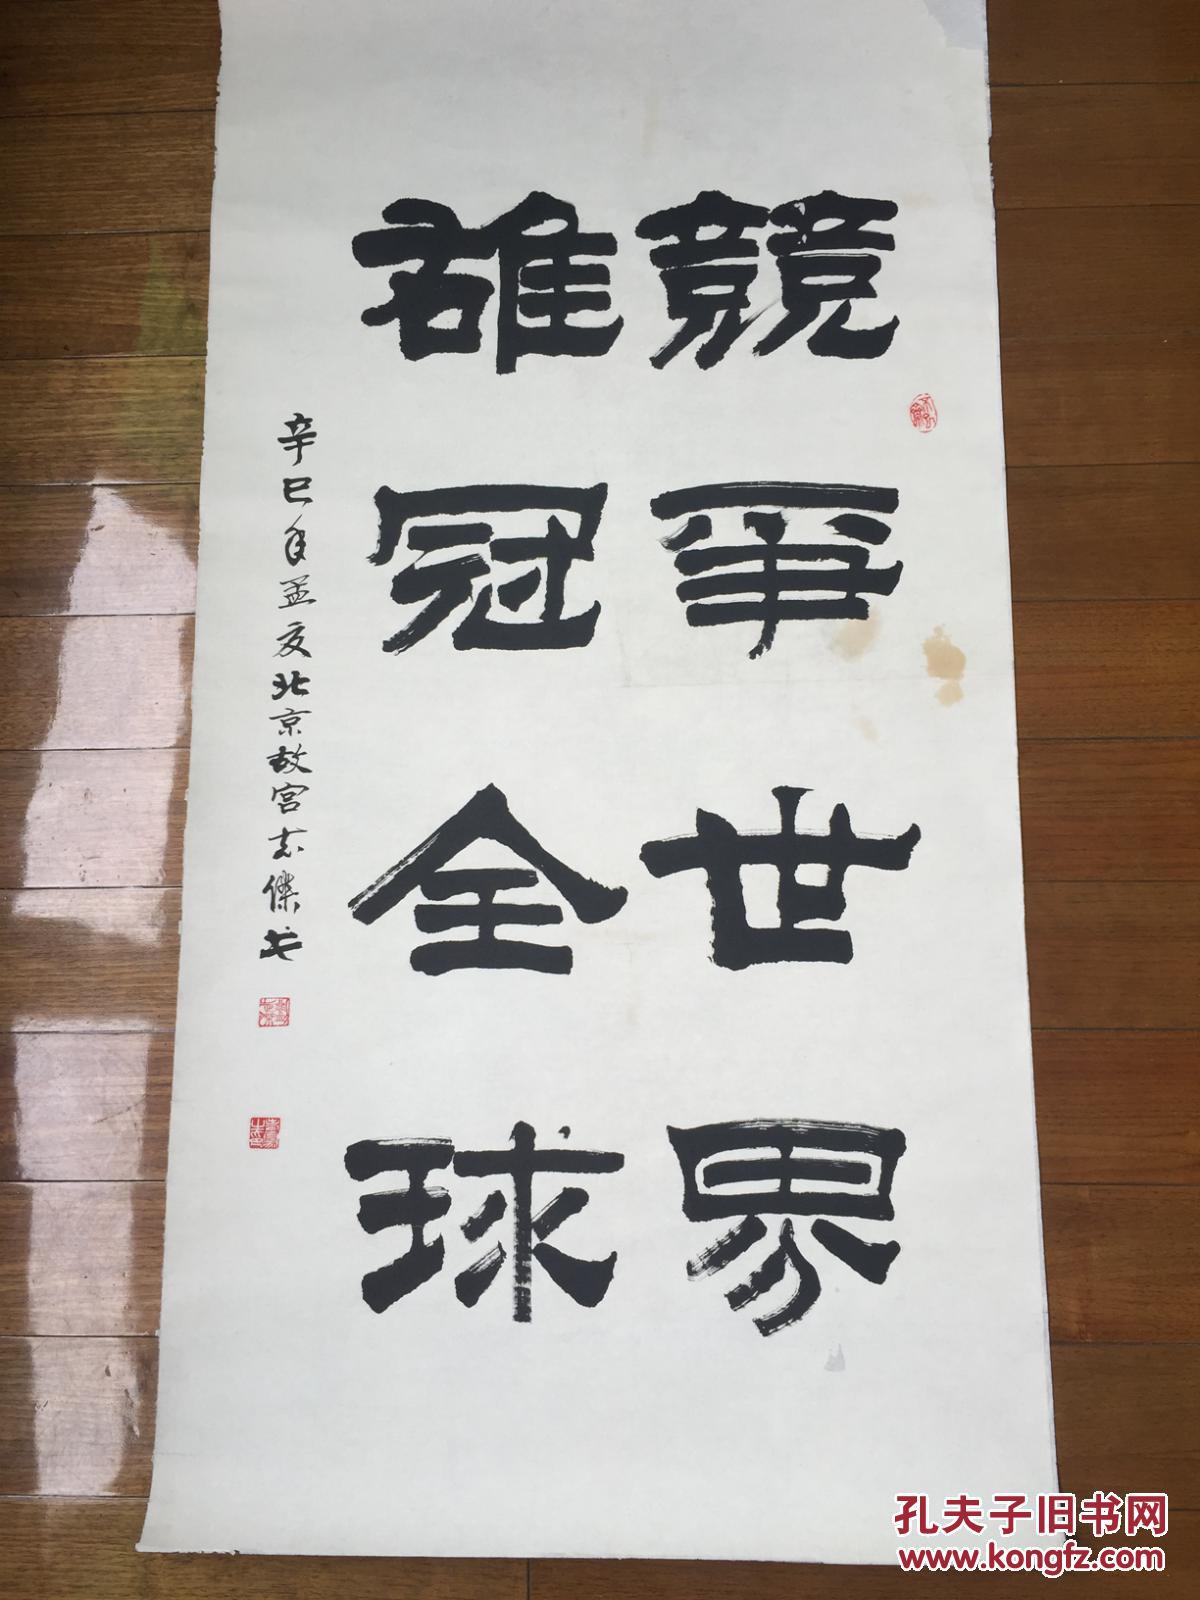 競爭世界
雄冠全球
辛巳年孟夏北京故宮志傑书
孔夫子旧书网
www.kongfz.com